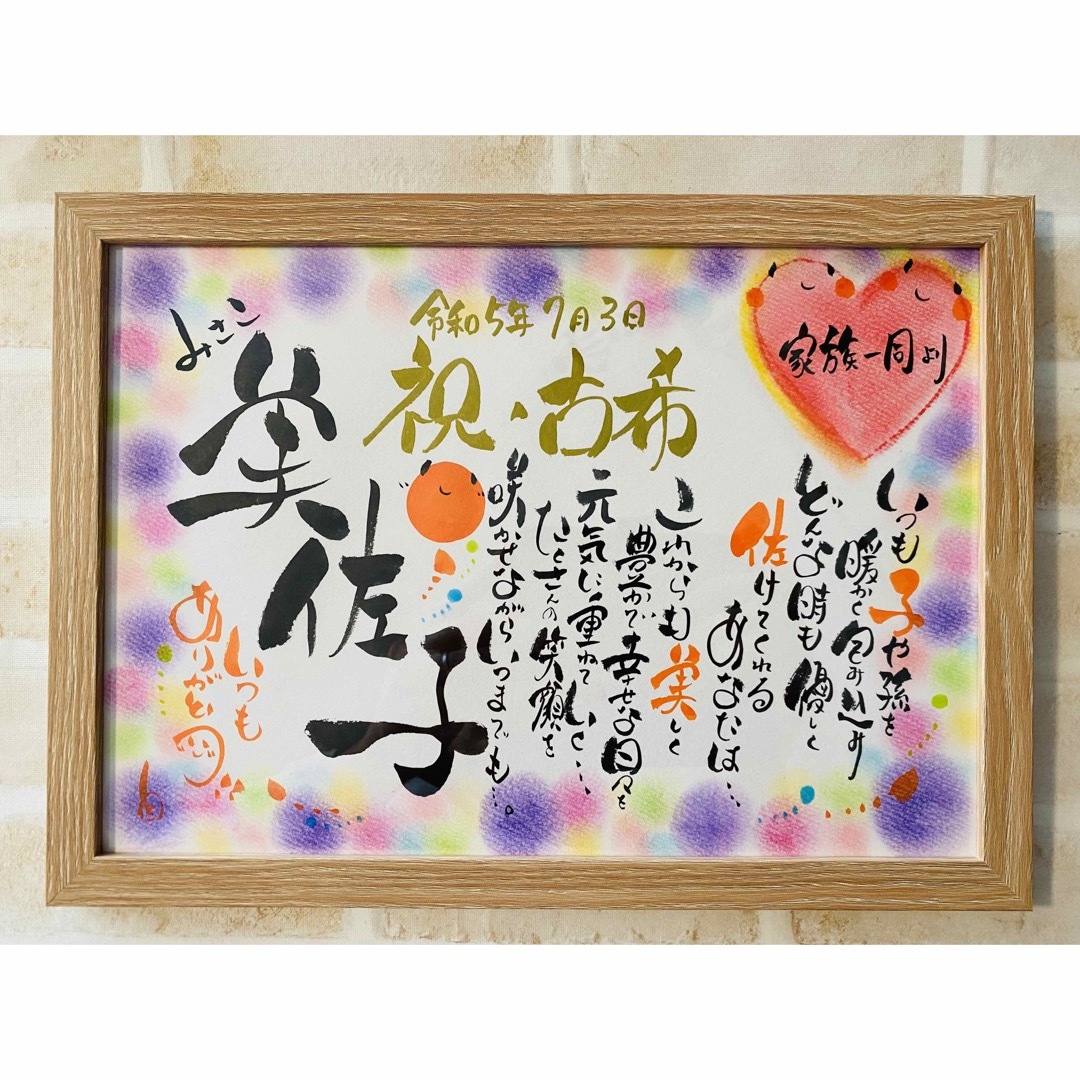 令和5年7月3日
祝・古希
家族一同より
みさこ
美佐子
いつも子や孫を
暖かく包み込み
どんな時も優しく
佐けてくれる
あなたは…
これからも美しく
豊かで幸せな日々を
元気に重ねていく…
たくさんの笑顔を
咲かせながらいつまでも…。
いつも
ありがとう!!